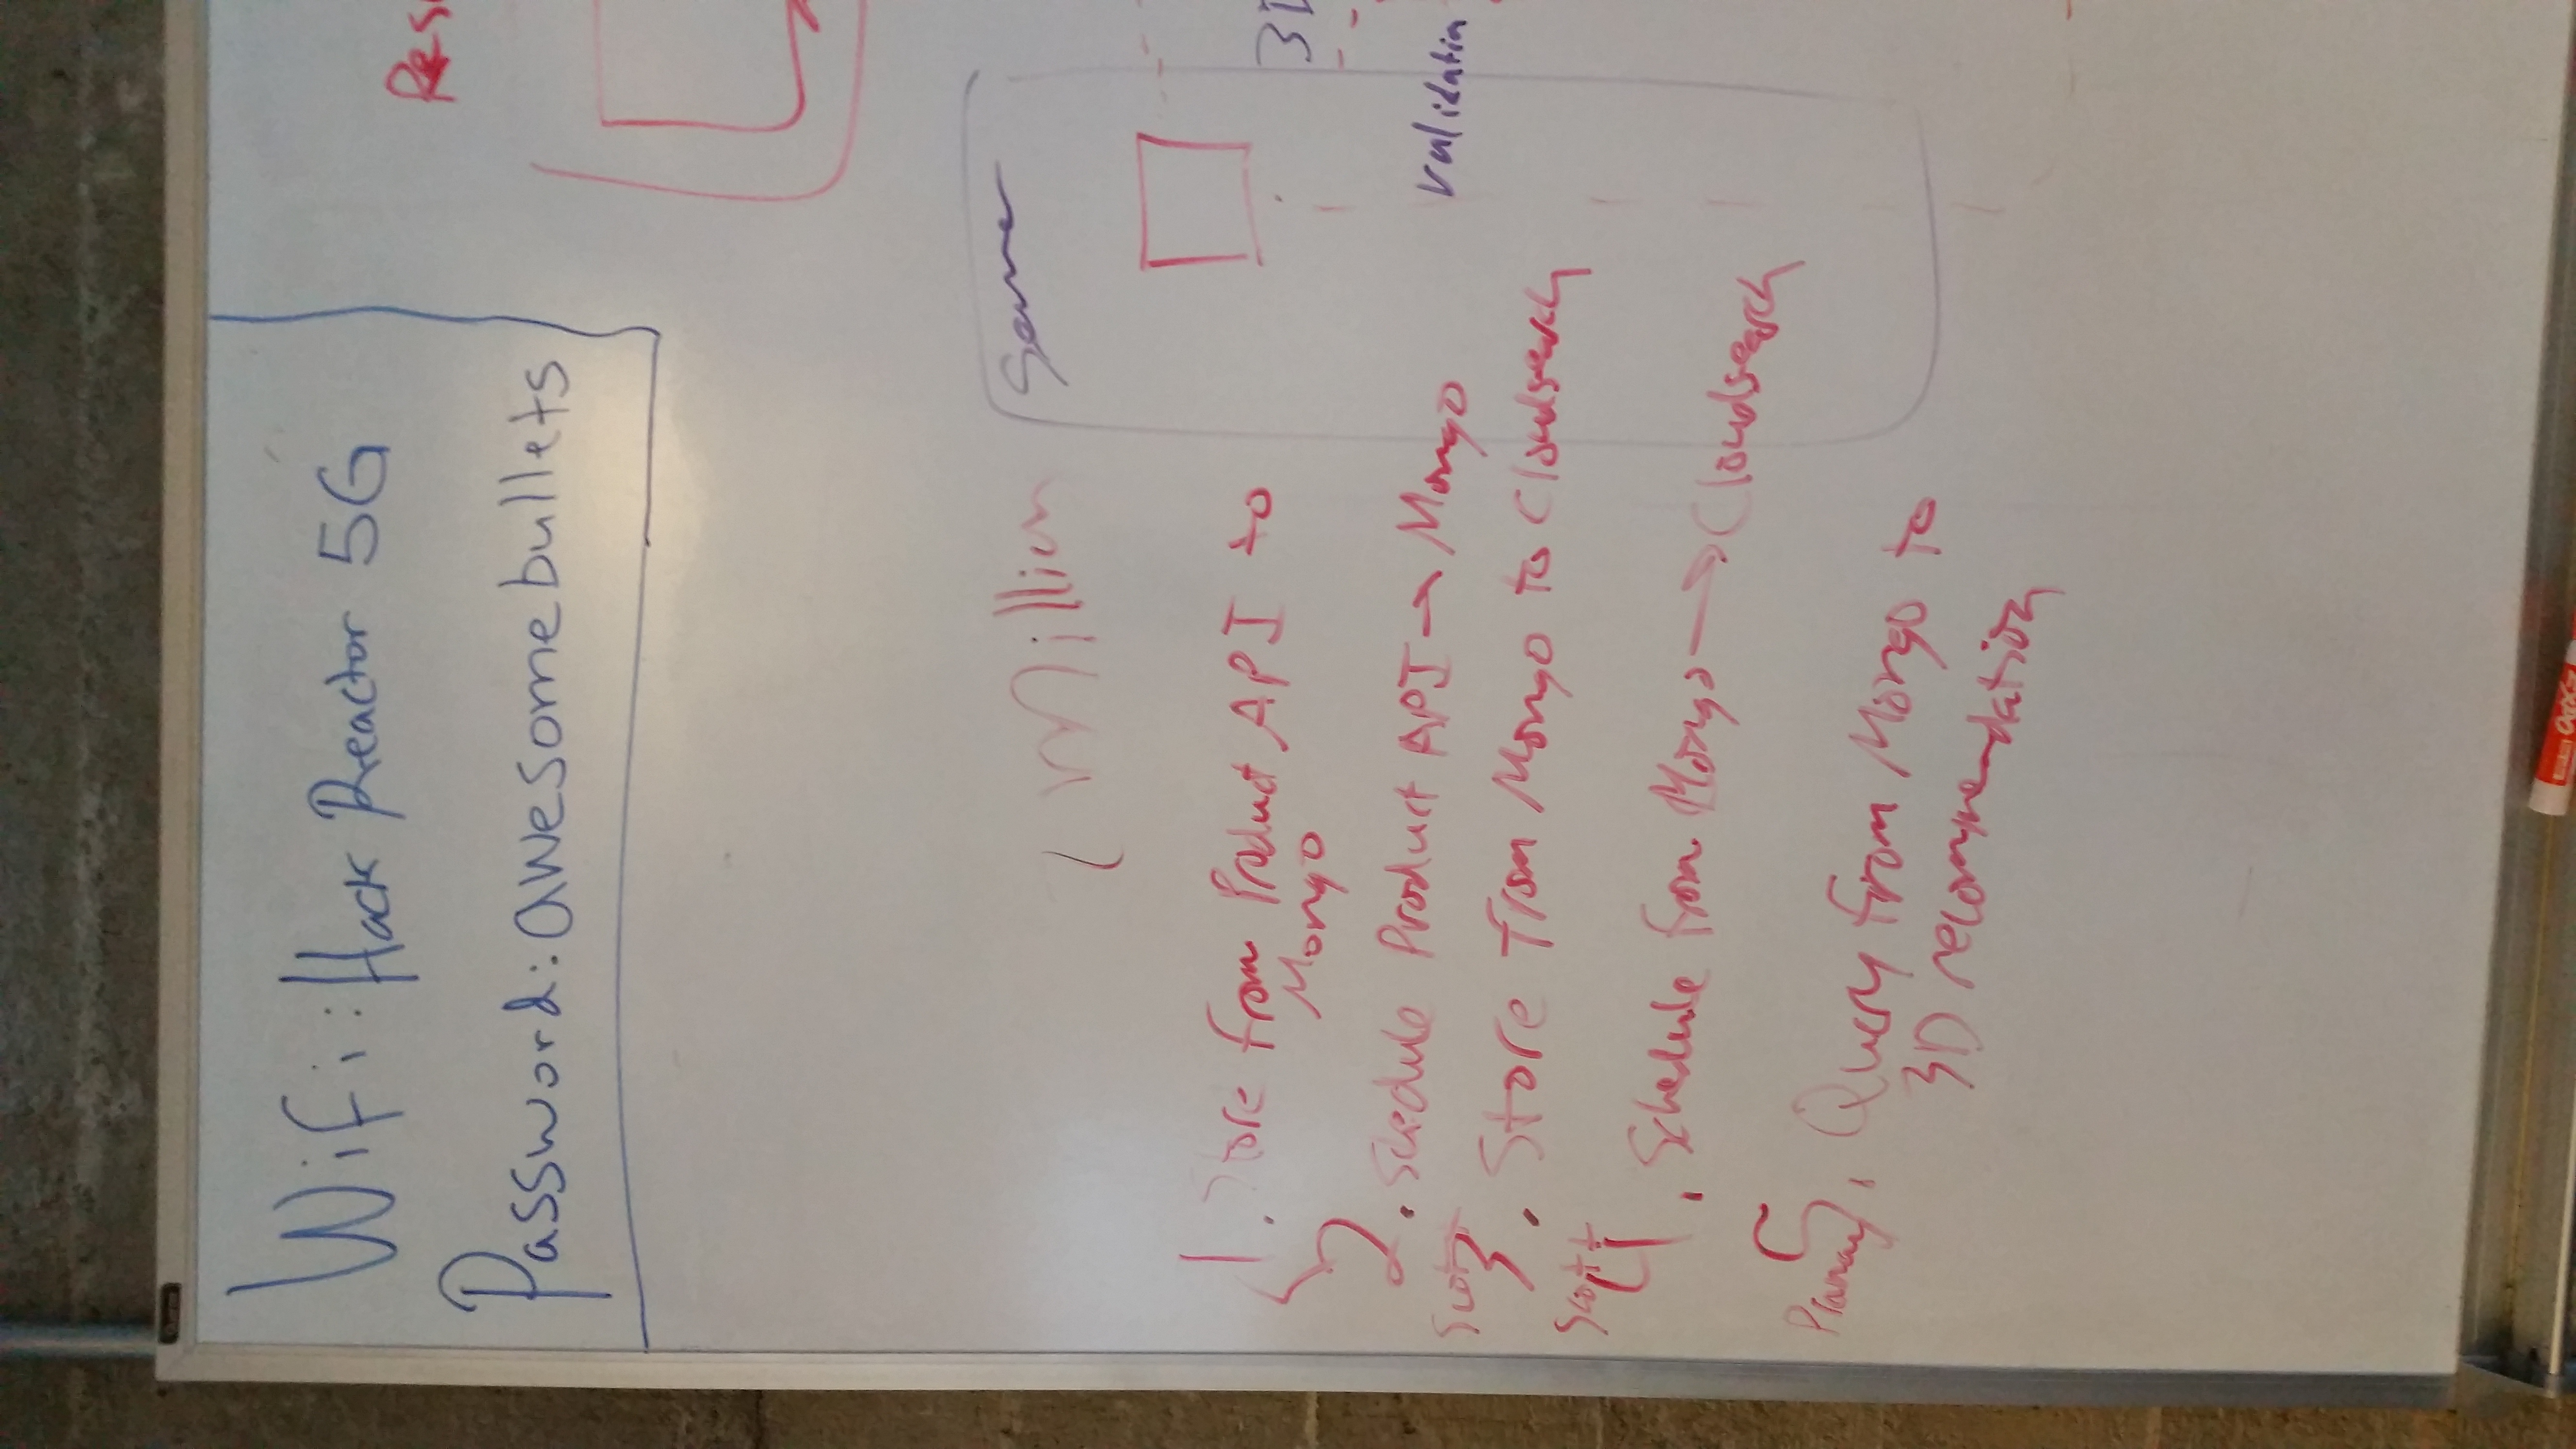 Wifi: Hack Reactor 5G
Password: awesomebullets
1 Million
Server
1. Store from Product API to
Mongo
2. Scedule Product API → Mongo
validatin
Scott
3. Store from Mongo to Cloudsearch
Scott
4. Schedule from Mongo → Cloudsearch
5. Query from Mongo to
3D recommendation
EXPO